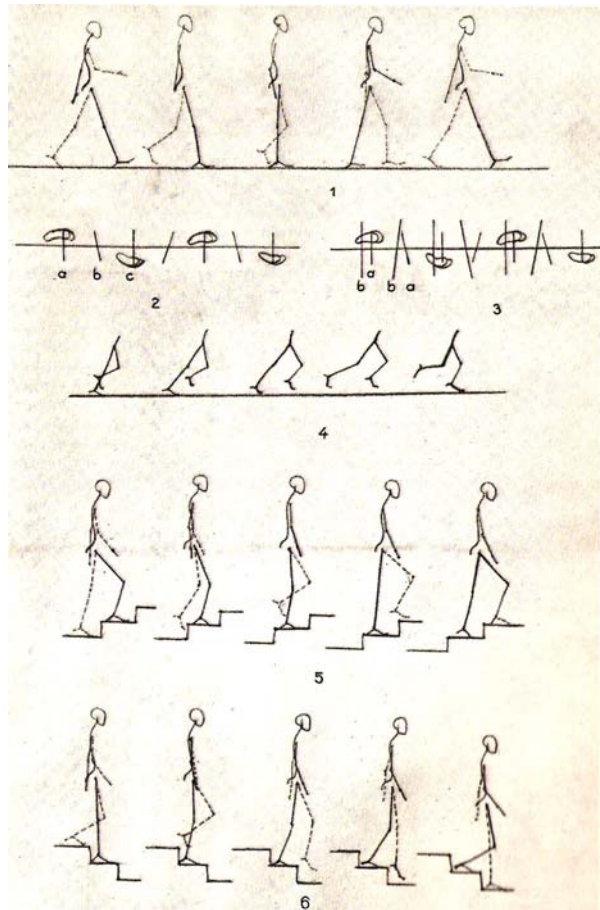 1
a b c
b a b a
2
3
4
5
6